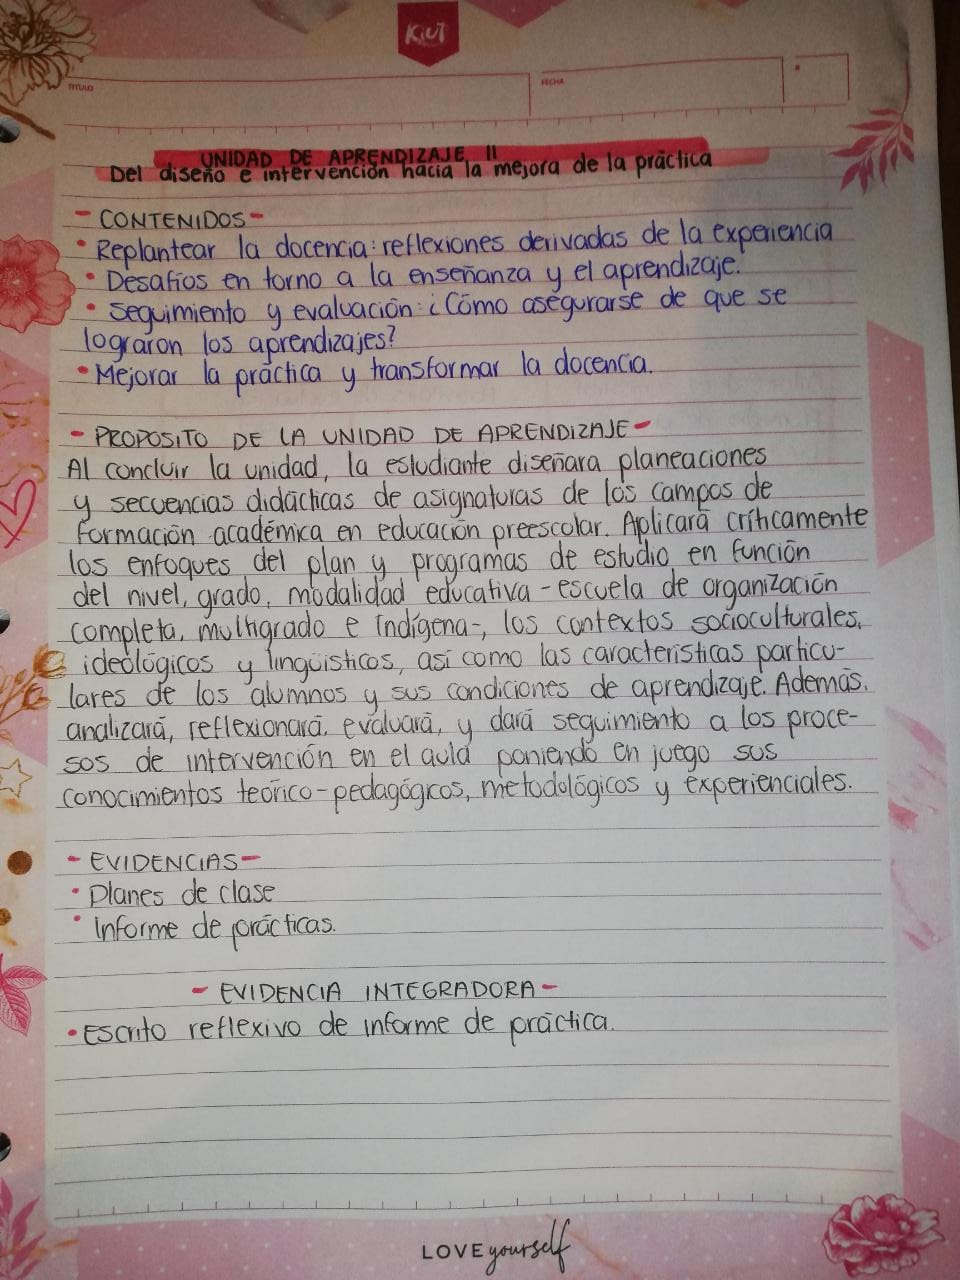 Kiut
TITULO
FECHA
UNIDAD DE APRENDIZAJE II
Del diseño e intervención hacia la mejora de la práctica
- CONTENIDOS -
• Replantear la docencia: reflexiones derivadas de la experiencia
• Desafíos en torno a la enseñanza y el aprendizaje.
• Seguimiento y evaluación: ¿Cómo asegurarse de que se
lograron los aprendizajes?
• Mejorar la práctica y transformar la docencia.
- PROPOSITO DE LA UNIDAD DE APRENDIZAJE -
Al concluir la unidad, la estudiante diseñara planeaciones
y secuencias didácticas de asignaturas de los campos de
formación académica en educación preescolar. Aplicará críticamente
los enfoques del plan y programas de estudio en función
del nivel, grado, modalidad educativa - escuela de organización
completa, multigrado e Indígena-, los contextos socioculturales,
ideológicos y lingüísticos, así como las características particu-
lares de los alumnos y sus condiciones de aprendizaje. Además,
analizará, reflexionará, evaluará, y dará seguimiento a los proce-
sos de intervención en el aula poniendo en juego sus
conocimientos teórico-pedagógicos, metodológicos y experienciales.
- EVIDENCIAS -
• Planes de clase
• Informe de prácticas.
- EVIDENCIA INTEGRADORA -
• Escrito reflexivo de informe de práctica.
LOVE yourself